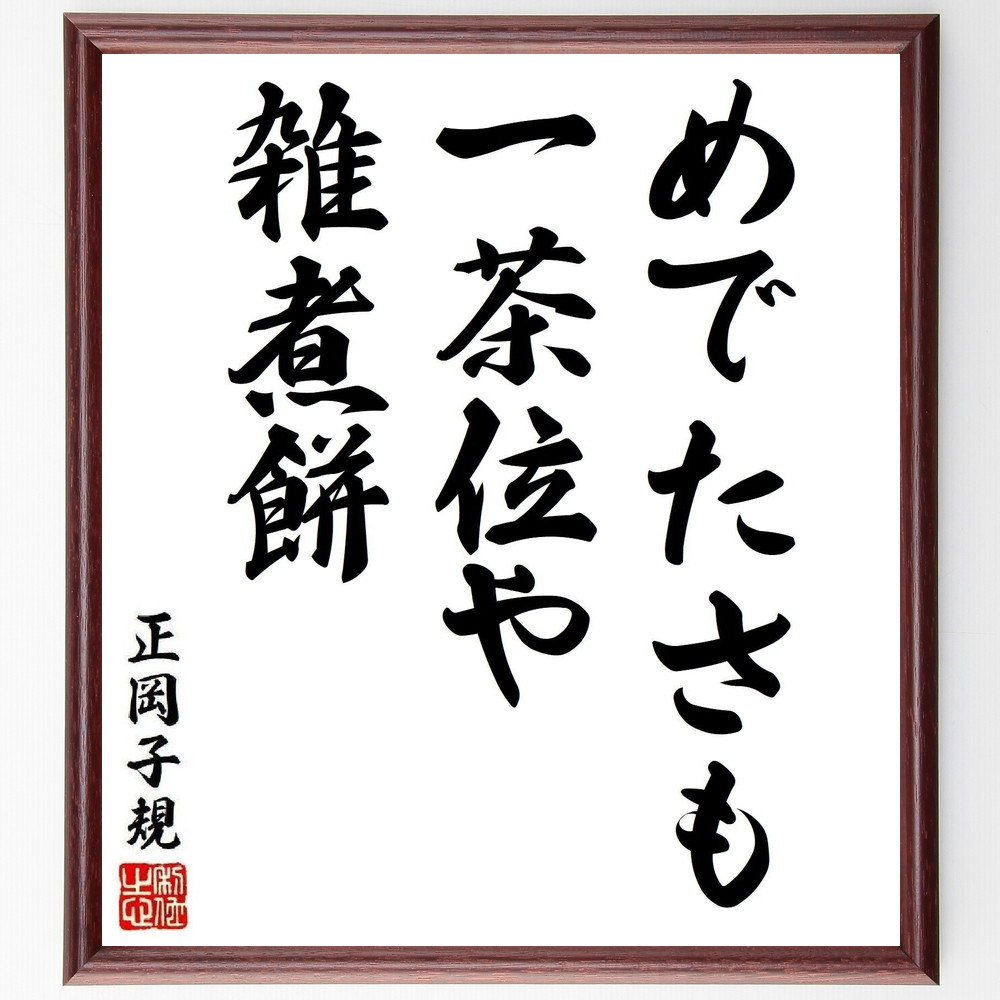 めでたさも
一茶位や
雑煮餅
正岡子規